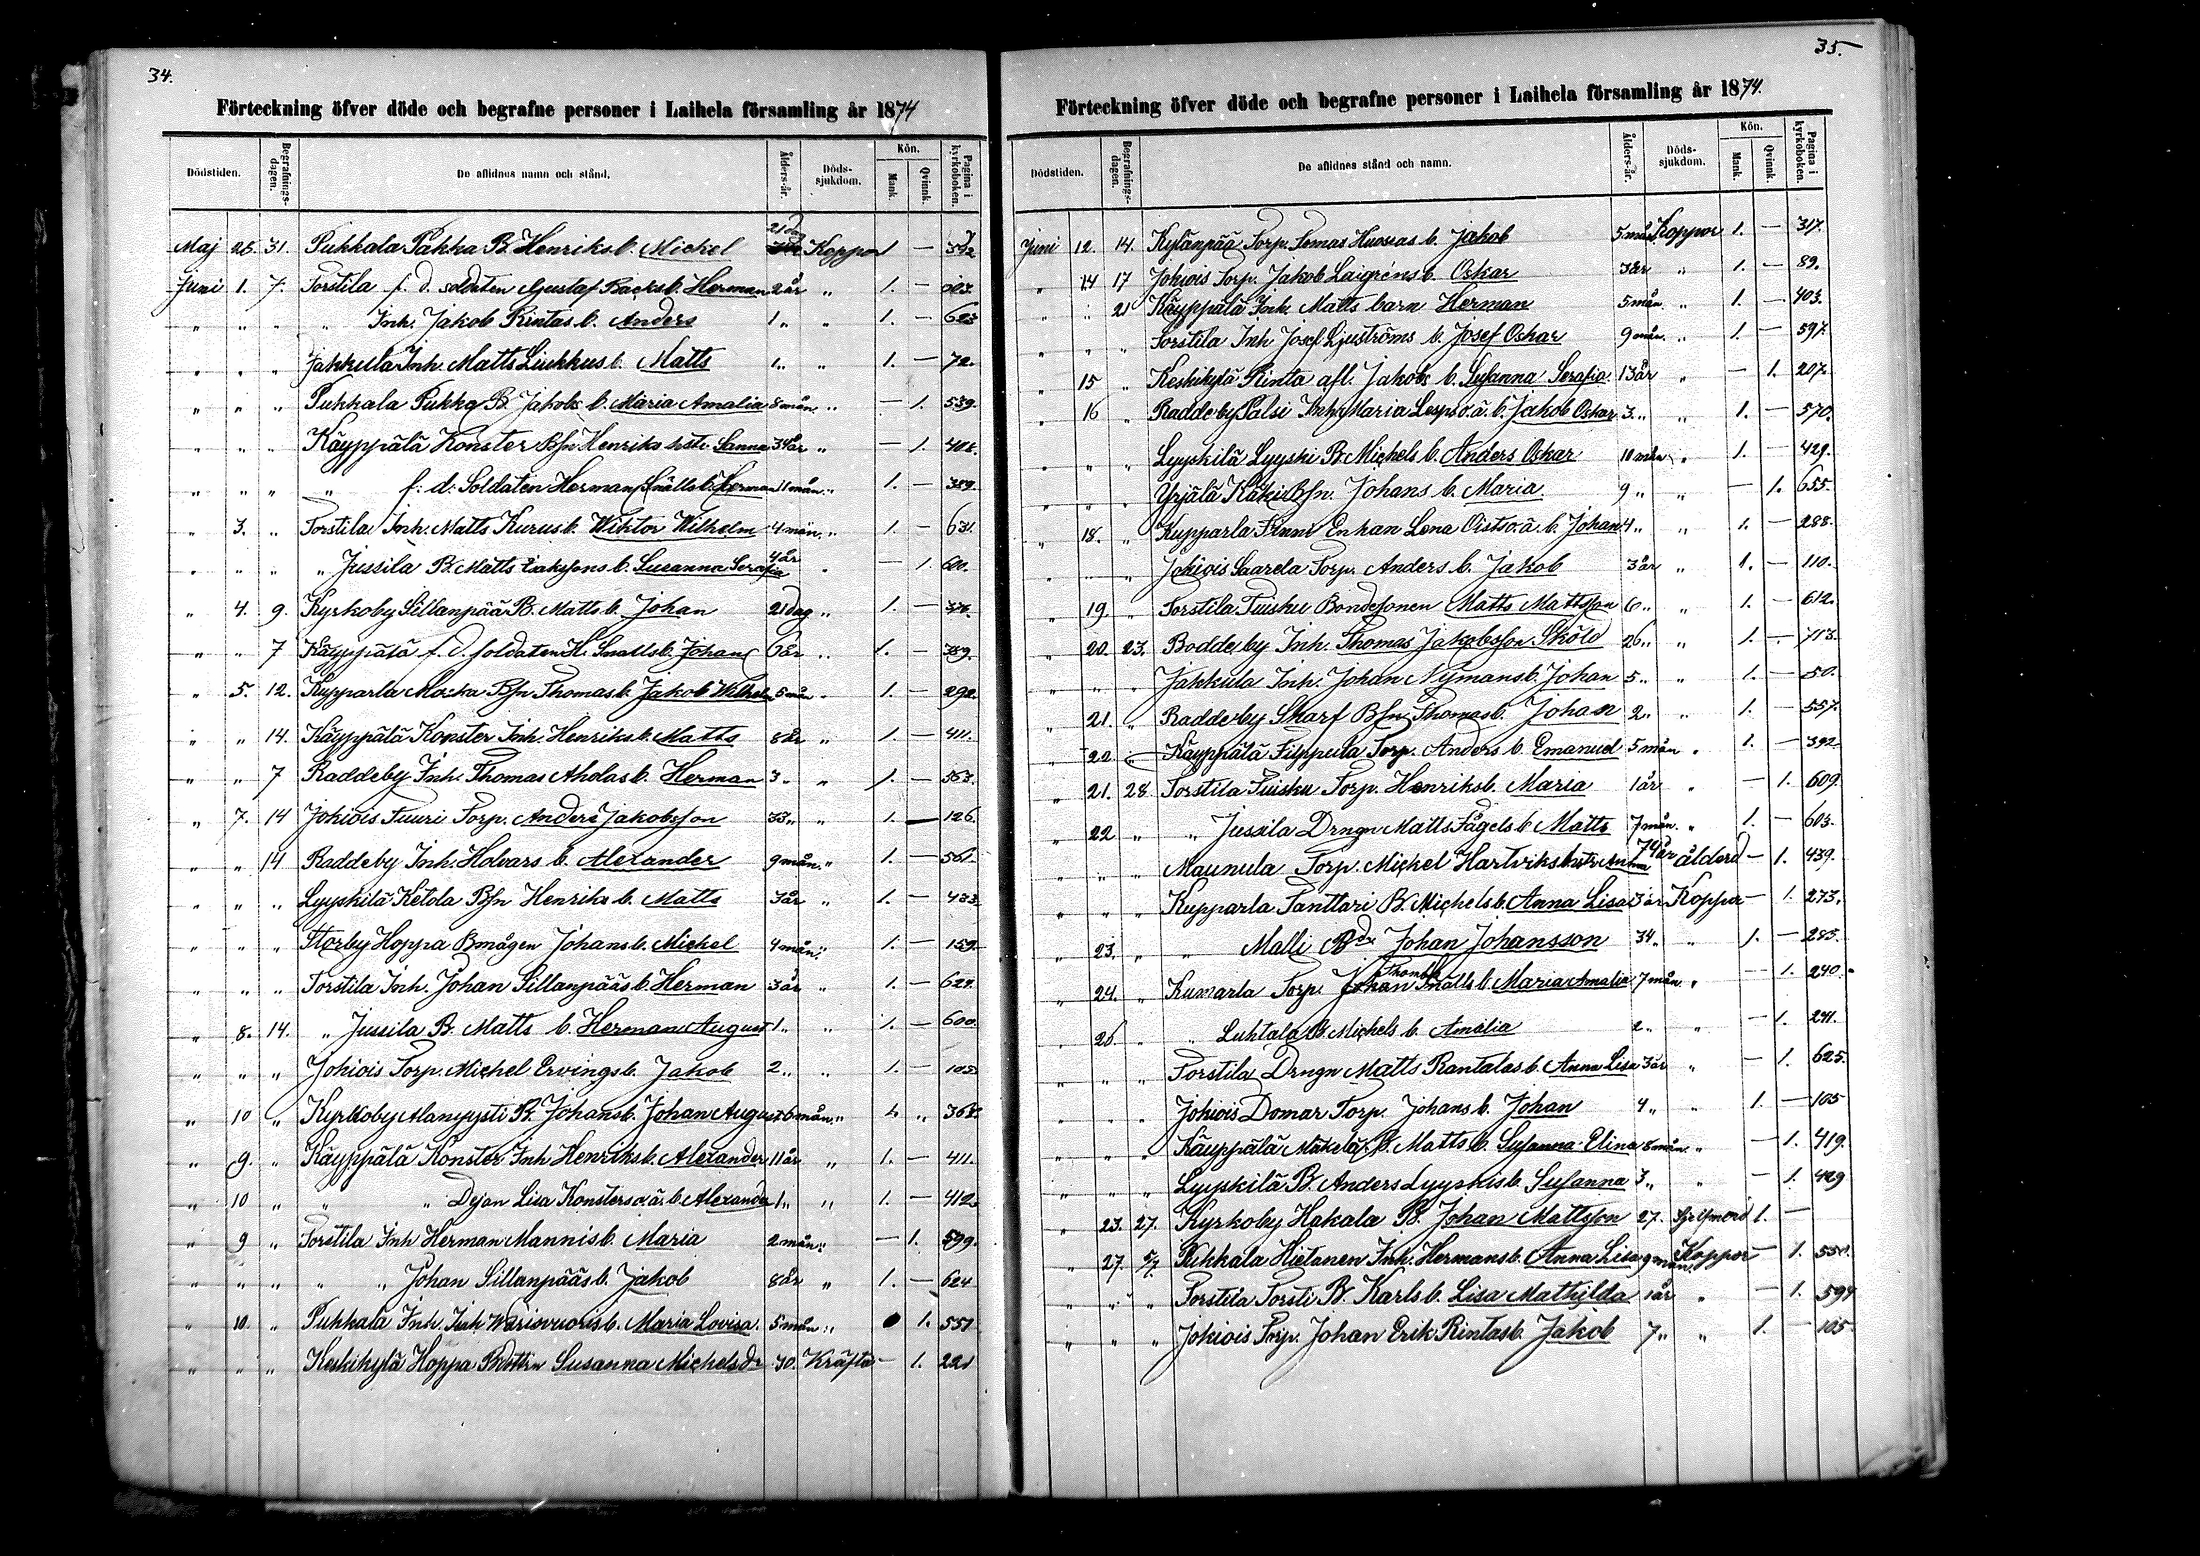 34.
Förteckning öfver döde och begrafne personer i Laihela församling år 1874
Dödstiden. Begrafnings-dagen. De aflidnes namn och stånd. Ålders-år. Döds-sjukdom. Kön. Mank. Qvinnk. Pagina i kyrkoboken.
Maj 26. 31. Pukkala Pakka B. Henriks b. Mickel 21 dag Koppor 1 —
Juni 1. 7. Torstila f. d. soldaten Gustaf Backs b. Herman 2 år " 1. —
" " " " Inh. Jakob Rintas b. Anders 1 " " 1. — 623
" " " Jakkula Inh. Matts Liukkus b. Matts 1 " " 1. — 72.
" " " Pukkala Pukka B. Jakobs b. Maria Amalia 8 mån. " — 1. 539.
" " " Käyppälä Konster Bsn Henriks hstr. Sanna 34 år " — 1.
" " " " f. d. Soldaten Herman Snälls b. Herman 11 mån. " 1. — 389.
" 3. " Torstila Inh. Matts Kurus b. Wiktor Wilhelm 4 mån. " 1. — 631.
" " " " Jussila B. Matts Isakssons b. Susanna Serafia 4 år " — 1 600.
" 4. 9. Kyrkoby Sillanpää B. Matts b. Johan 21 dag " 1. —
" " 7 Käyppälä f. d. soldaten H. Snälls b. Johan 6 år " 1. — 389.
" 5. 12. Kupparla Bsn Thomas b. Jakob Wilhelm 5 mån " 1. — 292.
" " 14. Käyppälä Konster Inh. Henriks b. Matts 8 år " 1. — 411.
" " 7 Raddeby Inh. Thomas Aholas b. Herman 3 " " 1. — 563.
" 7. 14 Jokiois Tuuri Torp. Anders Jakobsson 33 " " 1. — 126.
" " 14 Raddeby Inh. Holvars b. Alexander 9 mån. " 1. — 561.
" " " Lyyskilä Ketola Bsn Henriks b. Matts 3 år " 1. — 433
" " " Storby Hoppa Bmågen Johans b. Mickel 4 mån. " 1. — 159.
" " " Torstila Inh. Johan Sillanpääs b. Herman 3 år " 1. — 624.
" 8. 14. " Jussila B. Matts b. Herman August 1 " " 1. — 600.
" " " Jokiois Torp. Michel Ervings b. Jakob 2 " " 1. — 105
" 10 " Kyrkoby Alanyysti B. Johans b. Johan August 6 mån. " 1. "
" 9. " Käyppälä Konster Inh Henriks b. Alexander 11 år " 1. — 411.
" 10 " " " Dejan Lisa Konsters o. ä. b. Alexander 1 " " 1. — 412.
" 9 " Torstila Inh Herman Mannis b. Maria 2 mån. " — 1. 599.
" " " " " Johan Sillanpääs b. Jakob 8 år " 1. — 624
" 10. " Pukkala Inh. b. Maria Lovisa. 5 mån. " 1. 551
" " " Keskikylä Hoppa Susanna Michelsdr 30. Kräfta — 1. 221
35.
Förteckning öfver döde och begrafne personer i Laihela församling år 1874.
Dödstiden. Begrafnings-dagen. De aflidnes stånd och namn. Ålders-år. Döds-sjukdom. Kön. Mank. Qvinnk. Pagina i kyrkoboken.
Juni 12. 14. Kylänpää Torp. Tomas Huossas b. Jakob 5 mån Koppor 1. — 317.
" 14 17 Jokiois Torp. Jakob Laigréns b. Oskar 3 år " 1. — 89.
" " 21 Käyppälä Inh. Matts barn Herman 5 mån. " 1. — 403.
" " " Torstila Inh Josef Ljuströms b. Josef Oskar 9 mån. " 1. — 597.
" 15 " Keskikylä Rinta afl. Jakobs b. Susanna Serafia. 13 år " — 1. 207.
" 16 " Raddeby Palsi Inh. Maria o. ä. b. Jakob Oskar 3 " " 1. — 570.
" " " Lyyskilä Lyyski B. Michels b. Anders Oskar 10 mån " 1. — 429.
" " " Yrjälä Käki Bsn. Johans b. Maria. 9 " " — 1. 655.
" 18. " Kupparla Enkan Lena o. ä. b. Johan 4 " " 1. — 288.
" " " Jokiois Saarela Torp. Anders b. Jakob 3 år " 1. — 110.
" 19. " Torstila Tuisku Bondesonen Matts Mattsson 6 " " 1. — 612.
" 20. 23. Boddeby Inh. Thomas Jakobsson Sköld 26 " " 1. — 713.
" " " Jakkula Inh. Johan Nymans b. Johan 5 " " 1. — 50.
" 21. " Raddeby Skarf Bsn. Thomas b. Johan 2 " " 1. — 557.
" 20. " Käyppälä Filppula Torp. Anders b. Emanuel 5 mån " 1. — 392.
" 21. 28. Torstila Tuisku Torp. Henriks b. Maria 1 år " — 1. 609.
" 22 " " Jussila Drngn Matts Fågels b. Matts 7 mån. " 1. — 603.
" " " Maunula Torp. Mickel Hartviks hstr Anna 74 år ålderd. — 1. 439.
" " " Kupparla Panttari B. Michels b. Anna Lisa 3 år Koppor — 1. 273.
" 23. " " Malli Johan Johansson 34 " " 1. — 283.
" 24. " Kumarla Torp. Thomas Johan Snälls b. Maria Amalia 7 mån. " — 1. 240.
" 26. " " Luhtala B. Michels b. Amalia 2 " " — 1. 241.
" " " Torstila Drngn Matts Rantalas b. Anna Lisa 3 år " — 1. 625.
" " " Jokiois Domar Torp. Johans b. Johan 4 " " 1. — 105
" " " Käyppälä Mäkelä B. Matts b. Susanna Elina 8 mån. " — 1. 419.
" " " Lyyskilä B. Anders Lyyskis b. Susanna 3 " " — 1. 429
" 23. 27. Kyrkoby Hakala B. Johan Mattsson 27. Sjelfmord 1. —
" 27. 5/7. Pukkala Hietanen Inh. Hermans b. Anna Lisa 9 mån. Koppor — 1. 550.
" " " Torstila Torsti B. Karls b. Lisa Mathilda 1 år " — 1. 594
" " " Jokiois Torp. Johan Erik Rintas b. Jakob 7 " " 1. — 105.